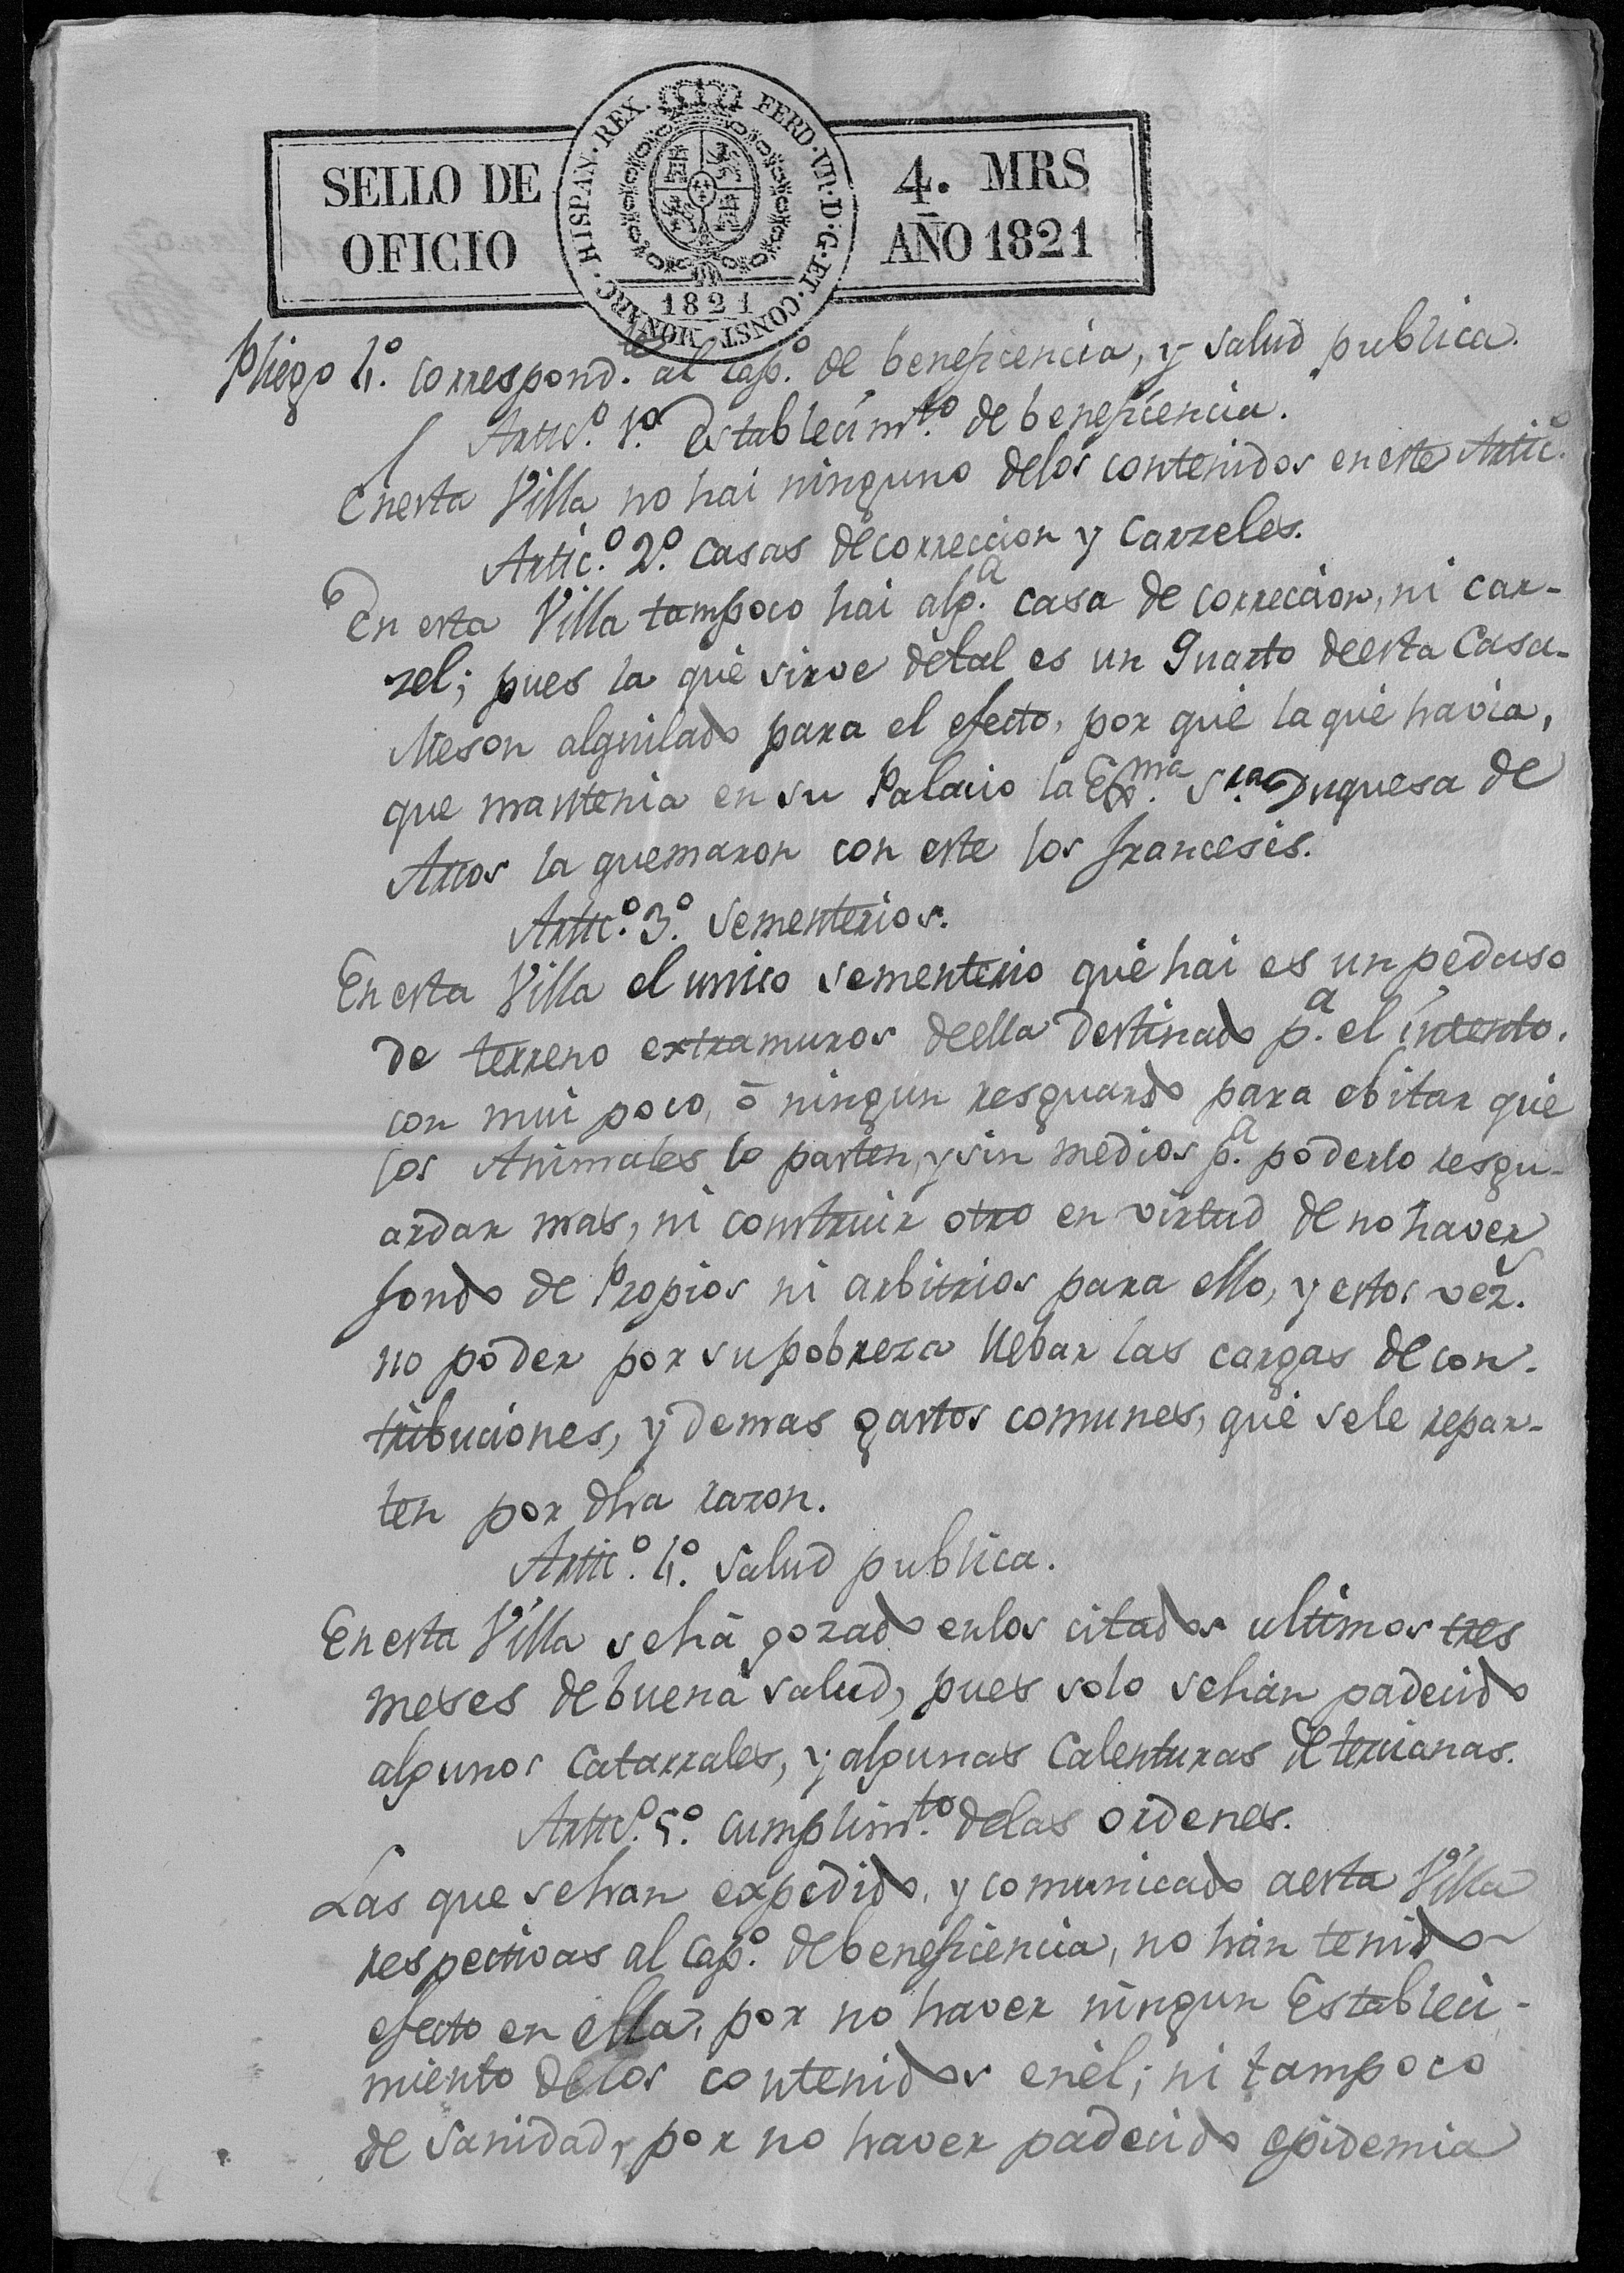 SELLO DE
OFICIO
HISPAN·REX. FERD·VII·D·G·ET·CONST·MONARC·
1821
4. MRS
AÑO 1821
Pliego 4º. correspond.te al Capº. de beneficencia, y salud publica.
Articº. 1º. Establecimto. de beneficencia.
En esta Villa no hai ninguno delos contenidos en este Articº.
Articº. 2º. Casas de correccion y Carzeles.
En esta Villa tampoco hai alg.a casa de correccion, ni car-
zel; pues la què sirve dètal es un Quarto de esta Casa-
Meson alquilado para el efecto, por què la què havia,
que mantenia en su Palacio la Exma. Sra. Duquesa de
Arcos la quemaron con este los franceses.
Articº. 3º. Sementerios.
En esta Villa el unico sementerio què hai es un pedaso
de terreno extramuros deella destinado p.a el intento,
con mui poco, ò ningun resguardo para ebitar què
los Animales lo pasten, y sin medios p.a poderlo resgu-
ardar mas, ni construir otro en virtud de no haver
fondo de Propios ni arbitrios para ello, y estos vez.s
no poder por su pobreza llebar las cargas de con-
tribuciones, y demas gastos comunes, què sele repar-
ten por dha razon.
Articº. 4º. Salud publica.
En esta Villa sehà gozado enlos citados ultimos tres
meses de buena salud, pues solo sehàn padecido
algunos Catarrales, y algunas Calenturas de tercianas.
Articº. 5º. Cumplimto. delas ordenes.
Las que sehan expedido, y comunicado aesta Villa
respectivas al Capº. de beneficencia, no hàn tenido
efecto en ella, por no haver ningun Estableci-
miento delos contenidos enèl; ni tampoco
de Sanidad, por no haver padecido epidemia